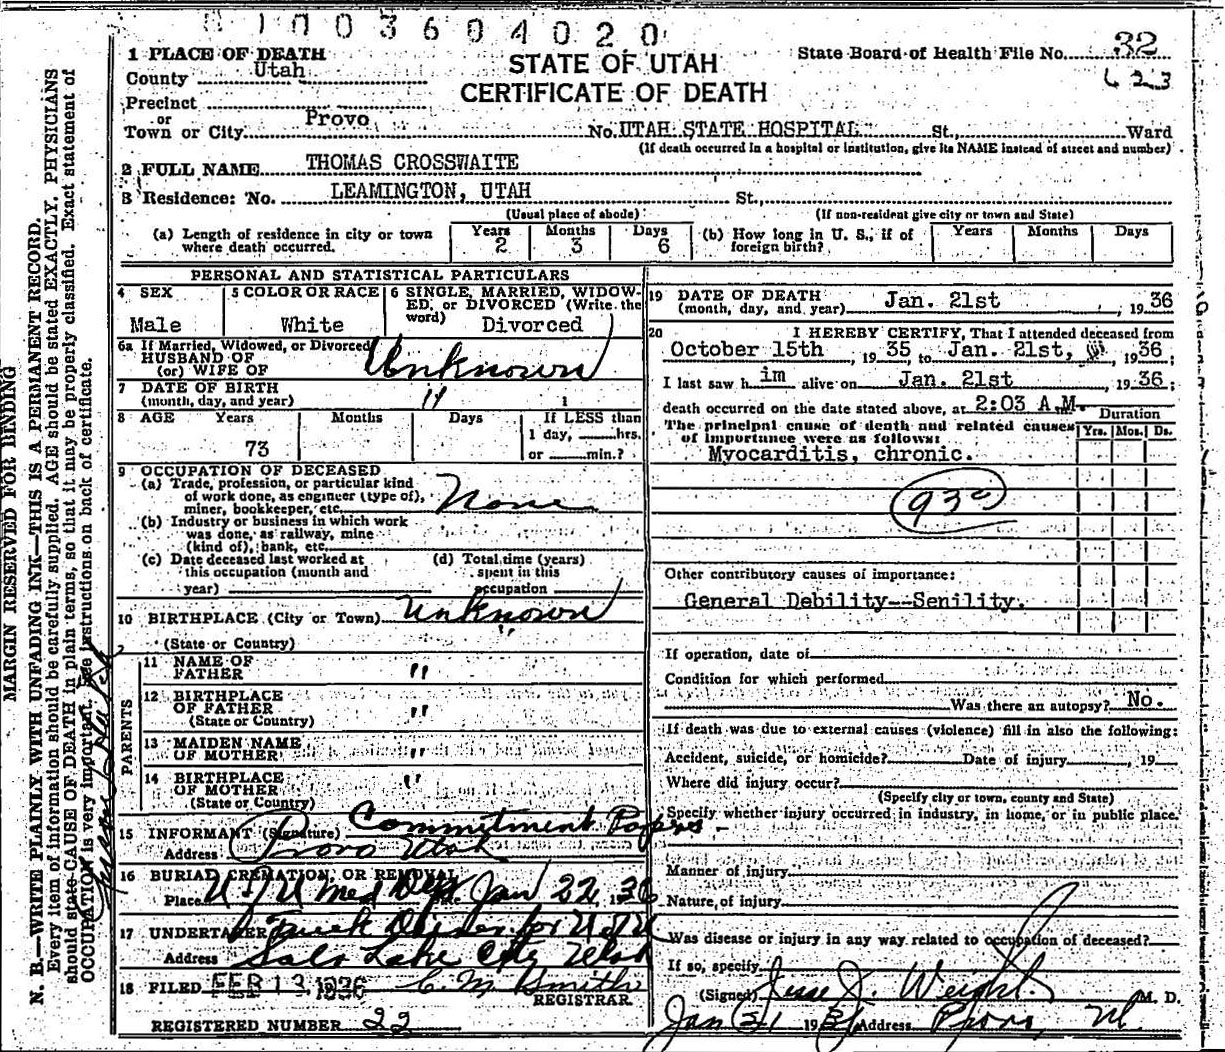 01003604020
1 PLACE OF DEATH
State Board of Health File No. 32
County Utah
STATE OF UTAH
623
CERTIFICATE OF DEATH
Precinct
or
Town or City Provo No. UTAH STATE HOSPITAL St., Ward
(If death occurred in a hospital or institution, give its NAME instead of street and number)
2 FULL NAME THOMAS CROSSWAITE
3 Residence: No. LEAMINGTON, UTAH St.,
(Usual place of abode) (If non-resident give city or town and State)
(a) Length of residence in city or town where death occurred. Years 2 Months 3 Days 6
(b) How long in U. S., if of foreign birth? Years Months Days
PERSONAL AND STATISTICAL PARTICULARS
4 SEX
Male
5 COLOR OR RACE
White
6 SINGLE, MARRIED, WIDOW-
ED, or DIVORCED (Write the
word) Divorced
6a If Married, Widowed, or Divorced
HUSBAND OF
(or) WIFE OF Unknown
7 DATE OF BIRTH
(month, day, and year) "
8 AGE Years Months Days If LESS than
73 1 day, hrs.
or min.?
9 OCCUPATION OF DECEASED
(a) Trade, profession, or particular kind
of work done, as engineer (type of),
miner, bookkeeper, etc. None
(b) Industry or business in which work
was done, as railway, mine
(kind of), bank, etc.
(c) Date deceased last worked at
this occupation (month and
year)
(d) Total time (years)
spent in this
occupation
10 BIRTHPLACE (City or Town) Unknown
(State or Country) "
PARENTS
11 NAME OF
FATHER "
12 BIRTHPLACE
OF FATHER "
(State or Country)
13 MAIDEN NAME
OF MOTHER "
14 BIRTHPLACE
OF MOTHER "
(State or Country)
15 INFORMANT (Signature) Commitment Papers
Address Provo Utah
16 BURIAL, CREMATION, OR REMOVAL
Place U of U Med Dept. Jan 22, 1936
17 UNDERTAKER Truck Driver for U of U
Address Salt Lake City Utah
18 FILED FEB 13 1936 C. M. Smith
REGISTRAR
REGISTERED NUMBER 22
19 DATE OF DEATH
(month, day, and year) Jan. 21st, 1936
20 I HEREBY CERTIFY, That I attended deceased from
October 15th, 1935 to Jan. 21st, 1936;
I last saw him alive on Jan. 21st, 1936;
death occurred on the date stated above, at 2:03 A.M. Duration
The principal cause of death and related causes Yrs. Mos. Ds.
of importance were as follows:
Myocarditis, chronic.
93c
Other contributory causes of importance:
General Debility--Senility.
If operation, date of
Condition for which performed
Was there an autopsy? No.
If death was due to external causes (violence) fill in also the following:
Accident, suicide, or homicide? Date of injury, 19
Where did injury occur?
(Specify city or town, county and State)
Specify whether injury occurred in industry, in home, or in public place.
Manner of injury
Nature of injury
Was disease or injury in any way related to occupation of deceased?
If so, specify
(Signed) Jesse J. Weight M. D.
Jan 21 1936 Address Provo, Ut.
MARGIN RESERVED FOR BINDING
N. B.—WRITE PLAINLY WITH UNFADING INK—THIS IS A PERMANENT RECORD.
Every item of information should be carefully supplied. AGE should be stated EXACTLY. PHYSICIANS
should state CAUSE OF DEATH in plain terms, so that it may be properly classified. Exact statement of
OCCUPATION is very important. See instructions on back of certificate.